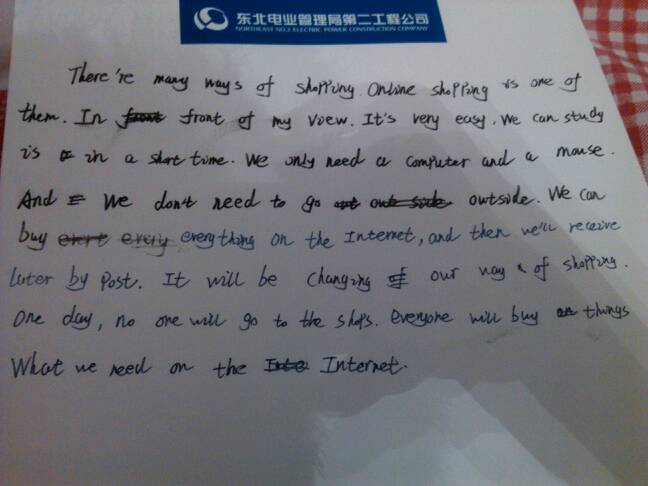 东北电业管理局第二工程公司
NORTHEAST NO.2 ELECTRIC POWER CONSTRUCTION COMPANY
There're many ways of shopping. Online shopping is one of
them. In front of my view. It's very easy. We can study
is in a short time. We only need a computer and a mouse.
And We don't need to go outside. We can
buy everything on the Internet, and then we'll receive
later by post. It will be changing our way of shopping.
One day, no one will go to the shops. Everyone will buy things
What we need on the Internet.